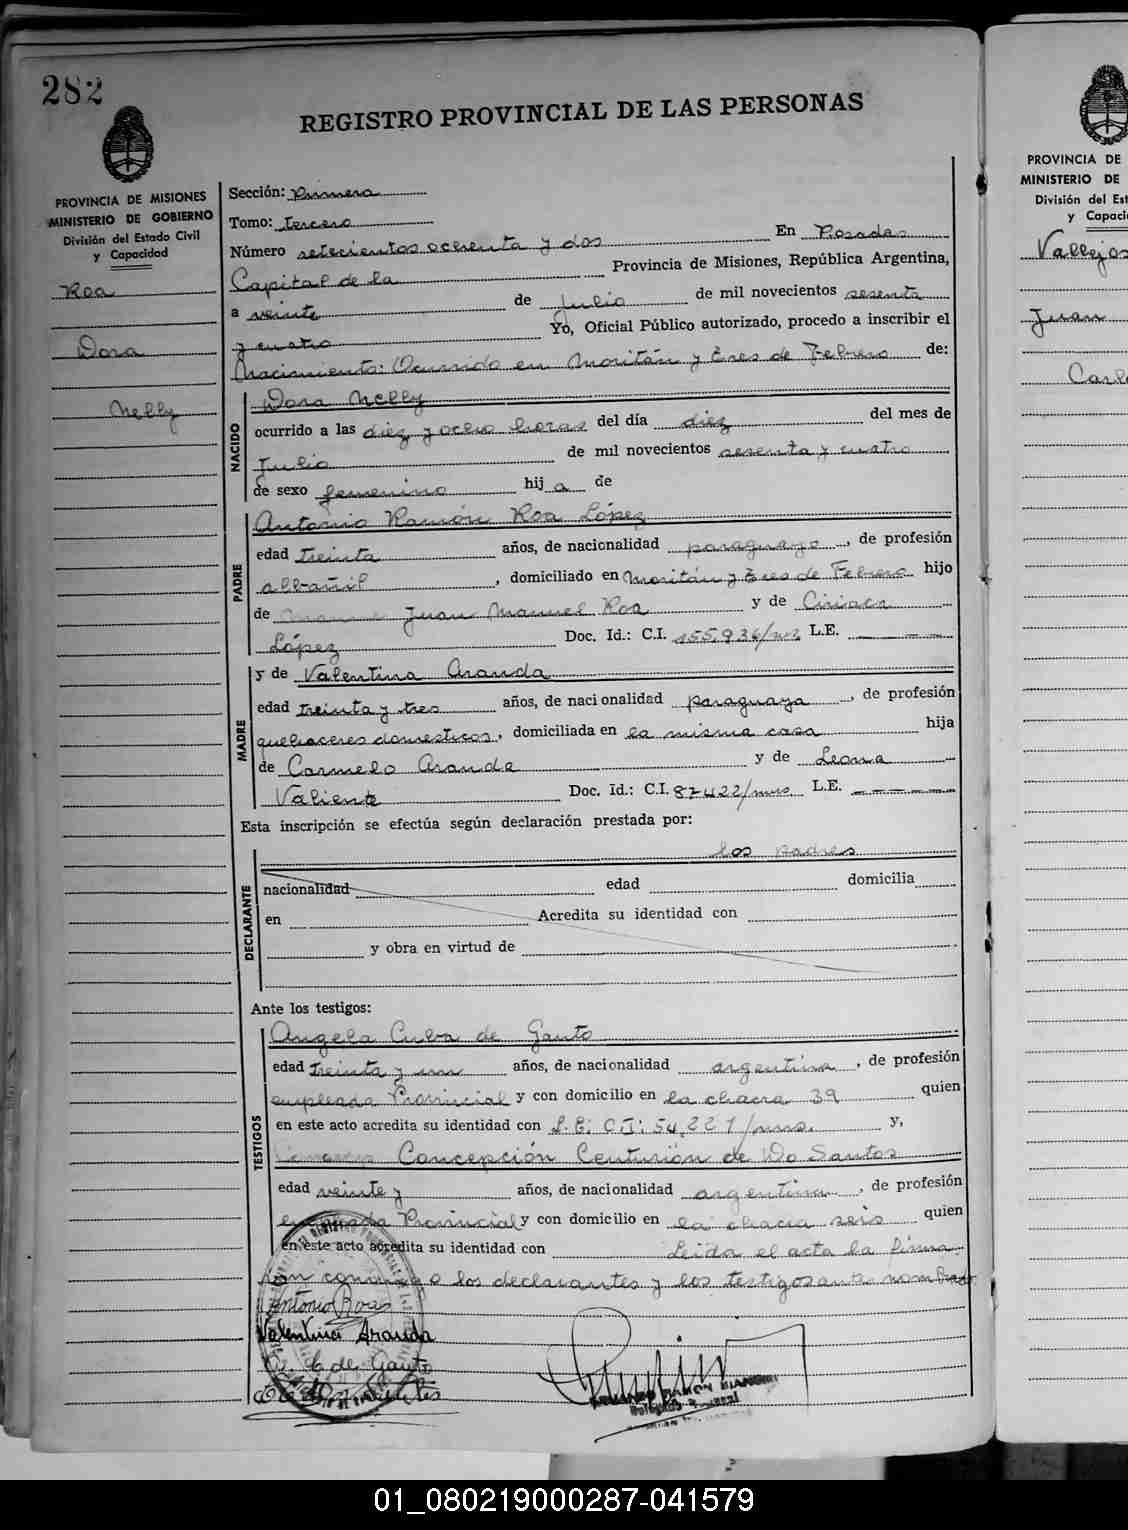 282
REGISTRO PROVINCIAL DE LAS PERSONAS
PROVINCIA DE MISIONES
MINISTERIO DE GOBIERNO
División del Estado Civil
y Capacidad
Roa
Dora
Nelly
Sección: Primera
Tomo: tercero
Número setecientos ochenta y dos En Posadas
Capital de la Provincia de Misiones, República Argentina,
a veinte de Julio de mil novecientos sesenta
y cuatro Yo, Oficial Público autorizado, procedo a inscribir el
Nacimiento: Ocurrido en Moritán y Tres de Febrero de:
NACIDO
Dora Nelly
ocurrido a las diez y ocho horas del día diez del mes de
Julio de mil novecientos sesenta y cuatro
de sexo femenino hij a de
PADRE
Antonio Ramón Roa López
edad treinta años, de nacionalidad paraguayo, de profesión
albañil, domiciliado en Moritán y Tres de Febrero hijo
de Juan Manuel Roa y de Ciriaca
López Doc. Id.: C.I. 155.936/mns L.E.
MADRE
y de Valentina Aranda
edad treinta y tres años, de nacionalidad paraguaya, de profesión
quehaceres domesticos, domiciliada en la misma casa hija
de Carmelo Aranda y de Leona
Valiente Doc. Id.: C.I. 87422/mns L.E.
Esta inscripción se efectúa según declaración prestada por:
DECLARANTE
los padres
nacionalidad edad domicilia
en Acredita su identidad con
y obra en virtud de
Ante los testigos:
TESTIGOS
Angela Cuba de Gauto
edad treinta y un años, de nacionalidad argentina, de profesión
empleada Provincial y con domicilio en la chacra 39 quien
en este acto acredita su identidad con C.I: 54.221/mns. y,
Concepción Centurión de Do Santos
edad veinte y años, de nacionalidad argentina, de profesión
empleada Provincial y con domicilio en la chacra seis quien
en este acto acredita su identidad con Leida el acta la firma
ron conmigo los declarantes y los testigos antes nombrados
Antonio Roa
Valentina Aranda
C. de Gauto
PROVINCIA DE
MINISTERIO DE
División del Est
y Capaci
Vallejos
Juan
Carl
01_080219000287-041579